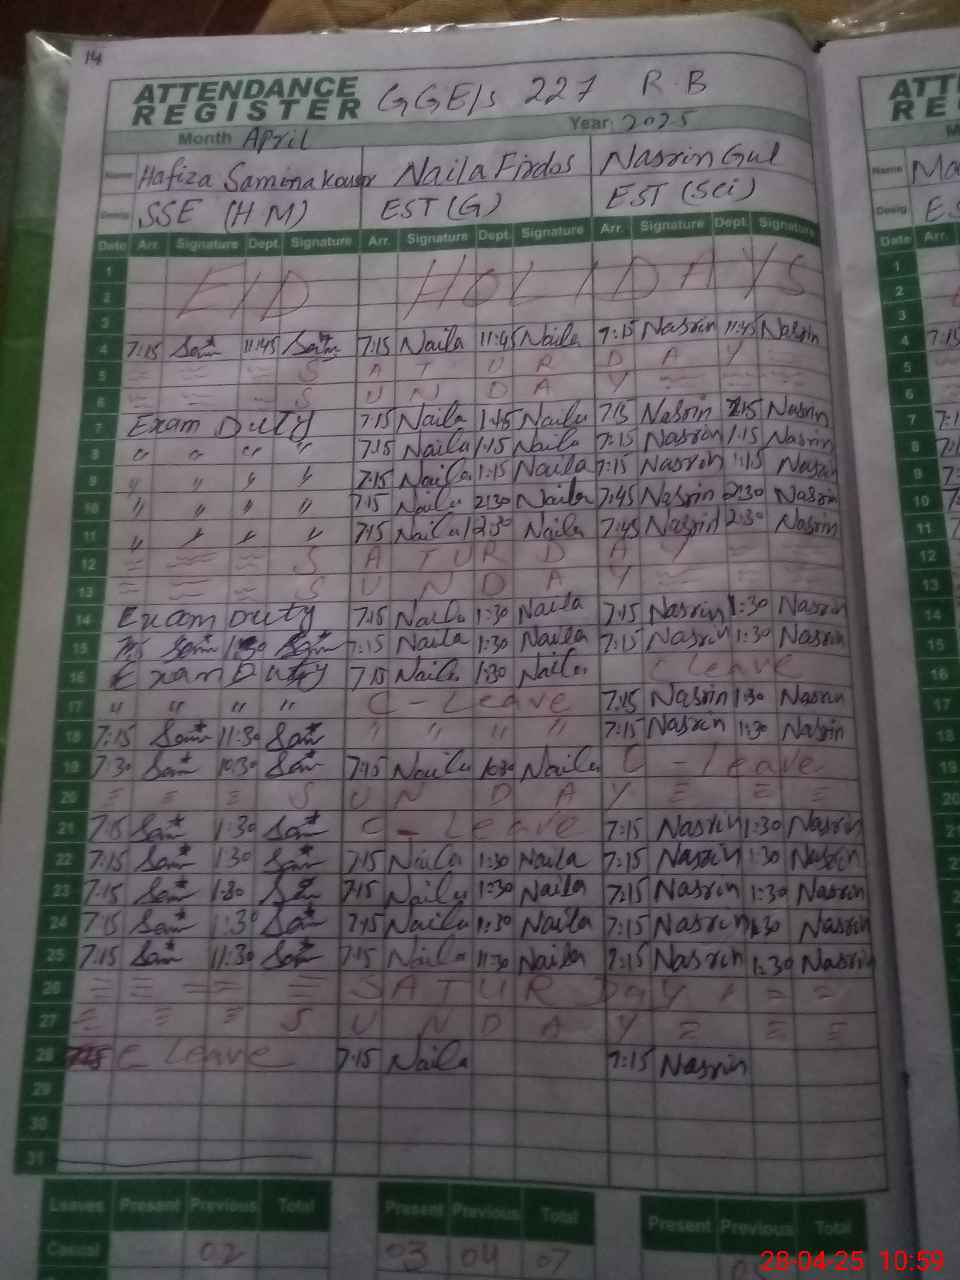 14
ATTENDANCE REGISTER GGE/s 227 R.B
Month April Year: 2025
Name Hafiza Samina Kousar Naila Firdos Nasrin Gul
Desig SSE (H.M) EST (G) EST (Sci)
Date Arr. Signature Dept. Signature Arr. Signature Dept. Signature Arr. Signature Dept. Signature
1
2 EID HOLIDAYS
3
4 7:15 11:45 7:15 Naila 11:45 Naila 7:15 Nasrin 11:45 Nasrin
5 SATURDAY
6 SUNDAY
7 Exam Duty 7:15 Naila 1:45 Naila 7:15 Nasrin Nasrin
8 " " " " 7:15 Naila 1:15 Naila 7:15 Nasrin 1:15 Nasrin
9 " " " " 7:15 Naila 1:15 Naila 7:15 Nasrin 1:15 Nasrin
10 " " " " 7:15 Naila 2:30 Naila 7:45 Nasrin 2:30 Nasrin
11 " " " " 7:45 Naila 2:30 Naila 7:45 Nasrin 2:30 Nasrin
12 SATURDAY
13 SUNDAY
14 Exam Duty 7:15 Naila 1:30 Naila 7:15 Nasrin 1:30 Nasrin
15 7:15 Naila 1:30 Naila 7:15 Nasrin 1:30 Nasrin
16 Exam Duty 7:15 Naila 1:30 Naila C Leave
17 " " " " C - Leave 7:15 Nasrin 1:30 Nasrin
18 7:15 11:30 " " " " 7:15 Nasrin 11:30 Nasrin
19 7:30 10:30 7:45 Naila 10:30 Naila C - Leave
20 SUNDAY
21 7:15 1:30 C - Leave 7:15 Nasrin 1:30 Nasrin
22 7:15 1:30 7:15 Naila 1:30 Naila 7:15 Nasrin 1:30 Nasrin
23 7:15 1:30 7:15 Naila 1:30 Naila 7:15 Nasrin 1:30 Nasrin
24 7:15 1:30 7:45 Naila 1:30 Naila 7:15 Nasrin 1:30 Nasrin
25 7:15 11:30 7:15 Naila 11:30 Naila 7:15 Nasrin 1:30 Nasrin
26 SATURDAY
27 SUNDAY
28 C Leave 7:15 Naila 7:15 Nasrin
29
30
31
Leaves Present Previous Total Present Previous Total Present Previous Total
Casual 02 03 04 07
ATT
RE
M
Name Ma
Desig ES
Date Arr.
1
2
3
4 7:15
5
6
7
8
9
10
11
12
13
14
15
16
17
18
19
20
28-04-25 10:59